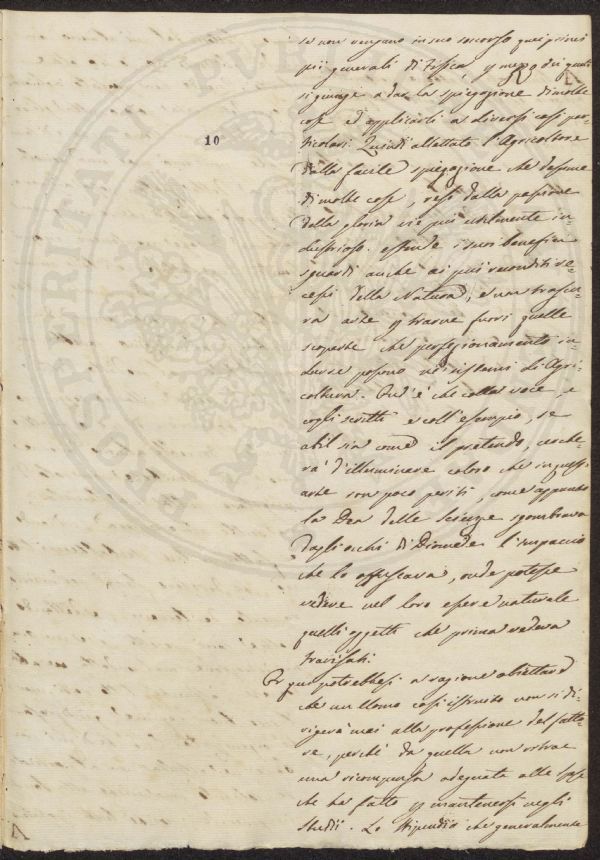 10
se non vengano in suo soccorso quei princi
pii generali di Fisica, per mezzo dei quali
si giunge a dar la spiegazione di molte
cose ed applicarli a diversi casi par
ticolari. Quindi allettato l'Agricoltore
dalla facile spiegazione che desume
di molte cose, reso dalla passione
della gloria vie più utilmente in
dustrioso estende i suoi benefici
sguardi anche ai più reconditi re-
cessi della Natura, e non trascu-
ra arte per trarne fuori quelle
scoperte che perfezionamento in
durre possono nei sistemi di Agri-
coltura. Ond'è che colla voce, e
cogli scritti e coll'esempio, se
abil sia come il pretendo, cerche-
rà d'illuminare coloro che in quest'
arte son poco periti, come appunto
la Dea delle Scienze sgombrava
dagli occhi di Diomede l'impaccio
che lo offuscava, onde potesse
vedere nel loro essere naturale
quelli oggetti che prima vedeva
travisati.
Or qui potrebbesi a ragione obiettare
che un Uomo così istruito non si di-
rigerà mai alla professione del fatto-
re, perchè da quella non ritrae
una ricompensa adeguata alle spese
che ha fatto per mantenersi negli
studii. Lo stipendio che generalmente
PROSPERITATI PVB